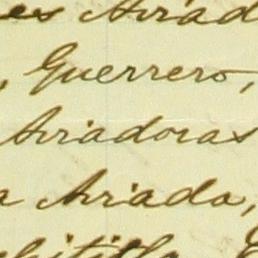 es Arriad
, Guerrero,
Arriadoras
a Arriada,